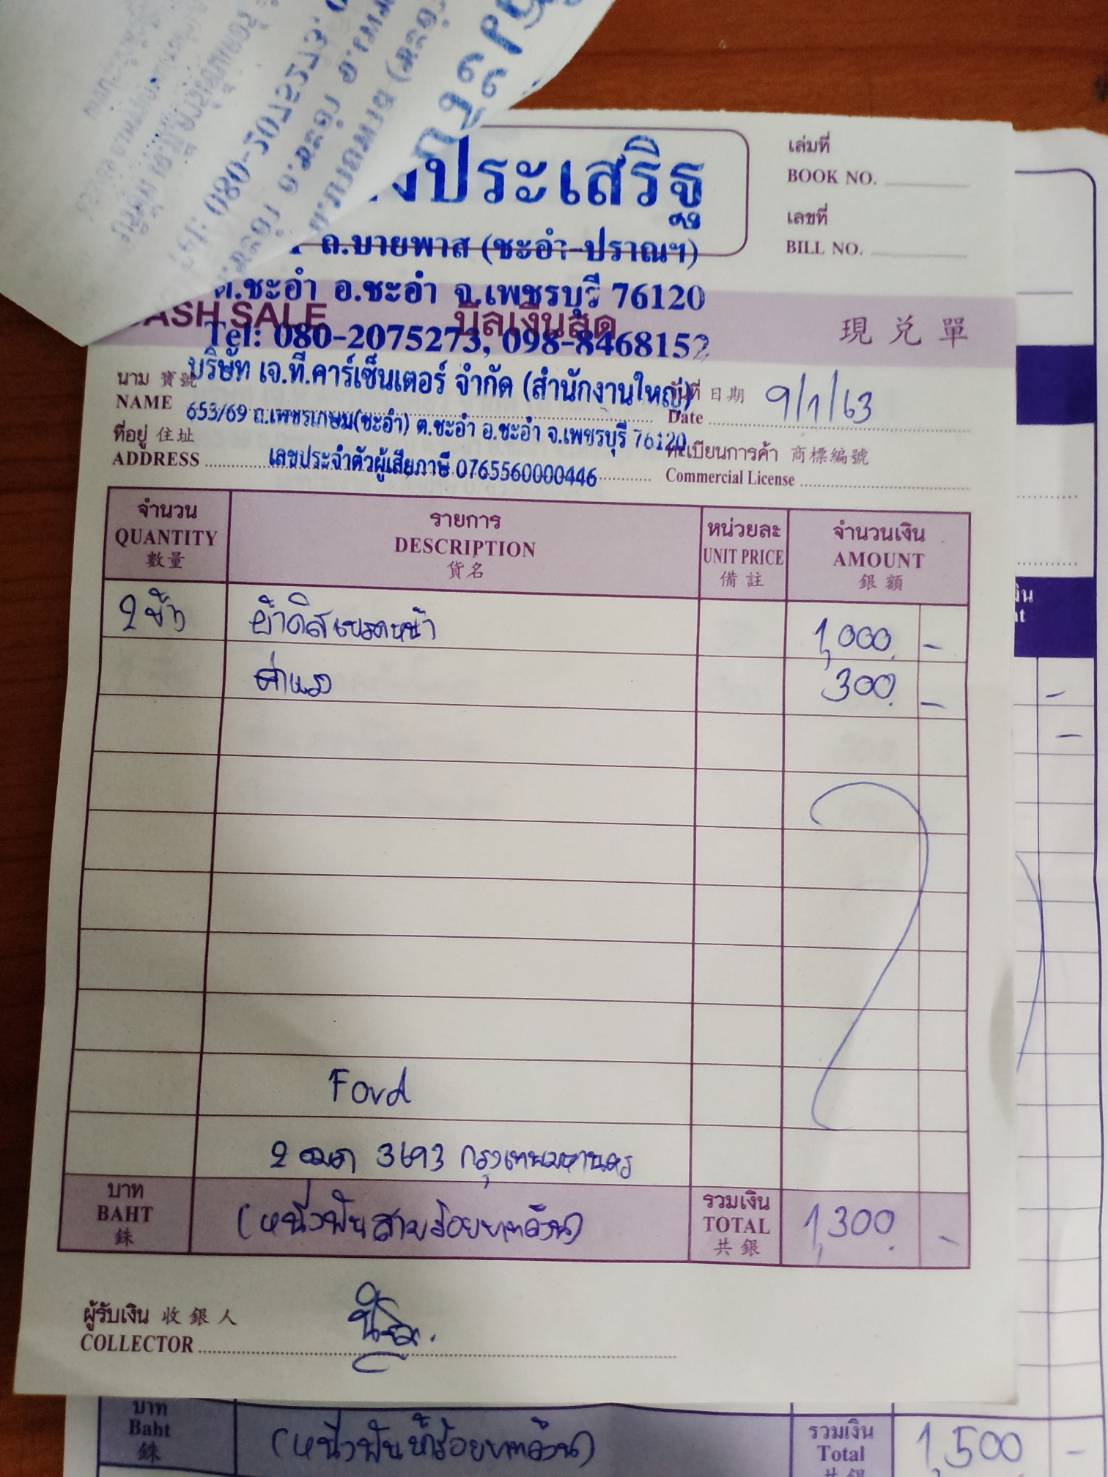 งประเสริฐ
ถ.บายพาส (ชะอำ-ปราณฯ)
ต.ชะอำ อ.ชะอำ จ.เพชรบุรี 76120
CASH SALE บิลเงินสด 現兌單
Tel: 080-2075273, 098-8468152
เล่มที่
BOOK NO.
เลขที่
BILL NO.
บริษัท เจ.ที.คาร์เซ็นเตอร์ จำกัด (สำนักงานใหญ่)
653/69 ถ.เพชรเกษม(ชะอำ) ต.ชะอำ อ.ชะอำ จ.เพชรบุรี 76120
เลขประจำตัวผู้เสียภาษี 0765560000446
นาม 寶號
NAME
วันที่ 日期 9/1/63
Date
ที่อยู่ 住址
ADDRESS
ทะเบียนการค้า 商標編號
Commercial License
จำนวน รายการ หน่วยละ จำนวนเงิน
QUANTITY DESCRIPTION UNIT PRICE AMOUNT
數量 貨名 備註 銀額
2 ผ้าดิสเบรคหน้า 1,000 -
ค่าแรง 300 -
Ford
กรุงเทพมหานคร
บาท
BAHT
銖
(หนึ่งพันสามร้อยบาทถ้วน)
รวมเงิน
TOTAL
共銀
1,300 -
ผู้รับเงิน 收銀人
COLLECTOR
บาท
Baht
銖
(หนึ่งพันห้าร้อยบาทถ้วน)
รวมเงิน
Total
1,500 -